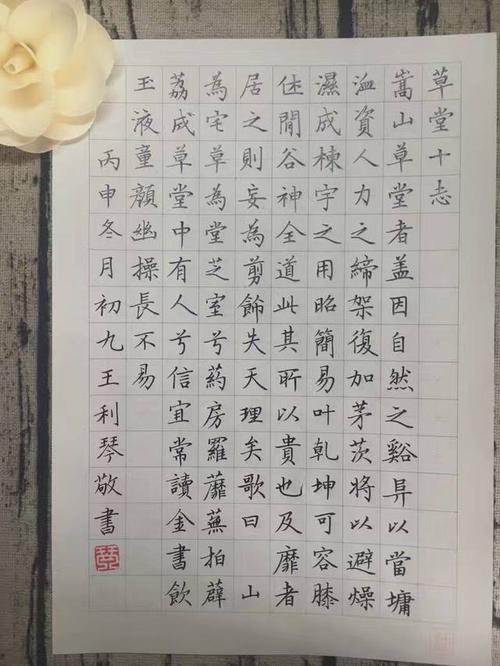 草堂十志
嵩山草堂者盖因自然之谿阜以當墉
洫資人力之締架復加茅茨將以避燥
濕成棟宇之用昭簡易叶乾坤可容膝
休閒谷神全道此其所以貴也及靡者
居之則妄為剪飾失天理矣歌曰 山
為宅草為堂芝室兮葯房羅蘼蕪拍薜
荔成草堂中有人兮信宜常讀金書飲
玉液童顏幽操長不易
丙申冬月初九王利琴敬書